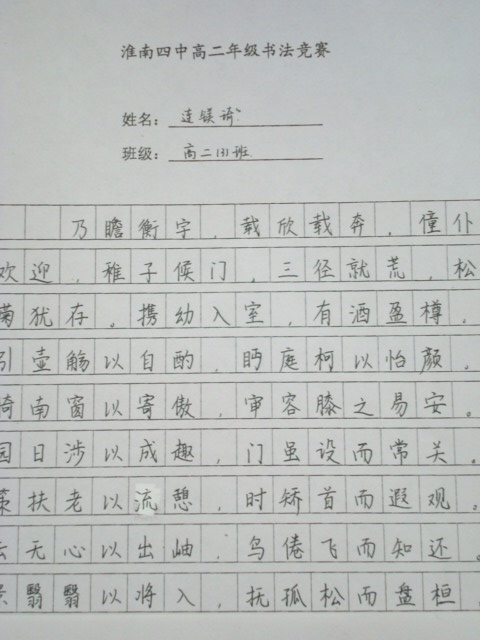 淮南四中高二年级书法竞赛
姓名：连
班级：高二(3)班
乃瞻衡宇，载欣载奔。僮仆
欢迎，稚子候门。三径就荒，松
菊犹存。携幼入室，有酒盈樽。
引壶觞以自酌，眄庭柯以怡颜。
倚南窗以寄傲，审容膝之易安。
园日涉以成趣，门虽设而常关。
策扶老以流憩，时矫首而遐观。
云无心以出岫，鸟倦飞而知还。
景翳翳以将入，抚孤松而盘桓。